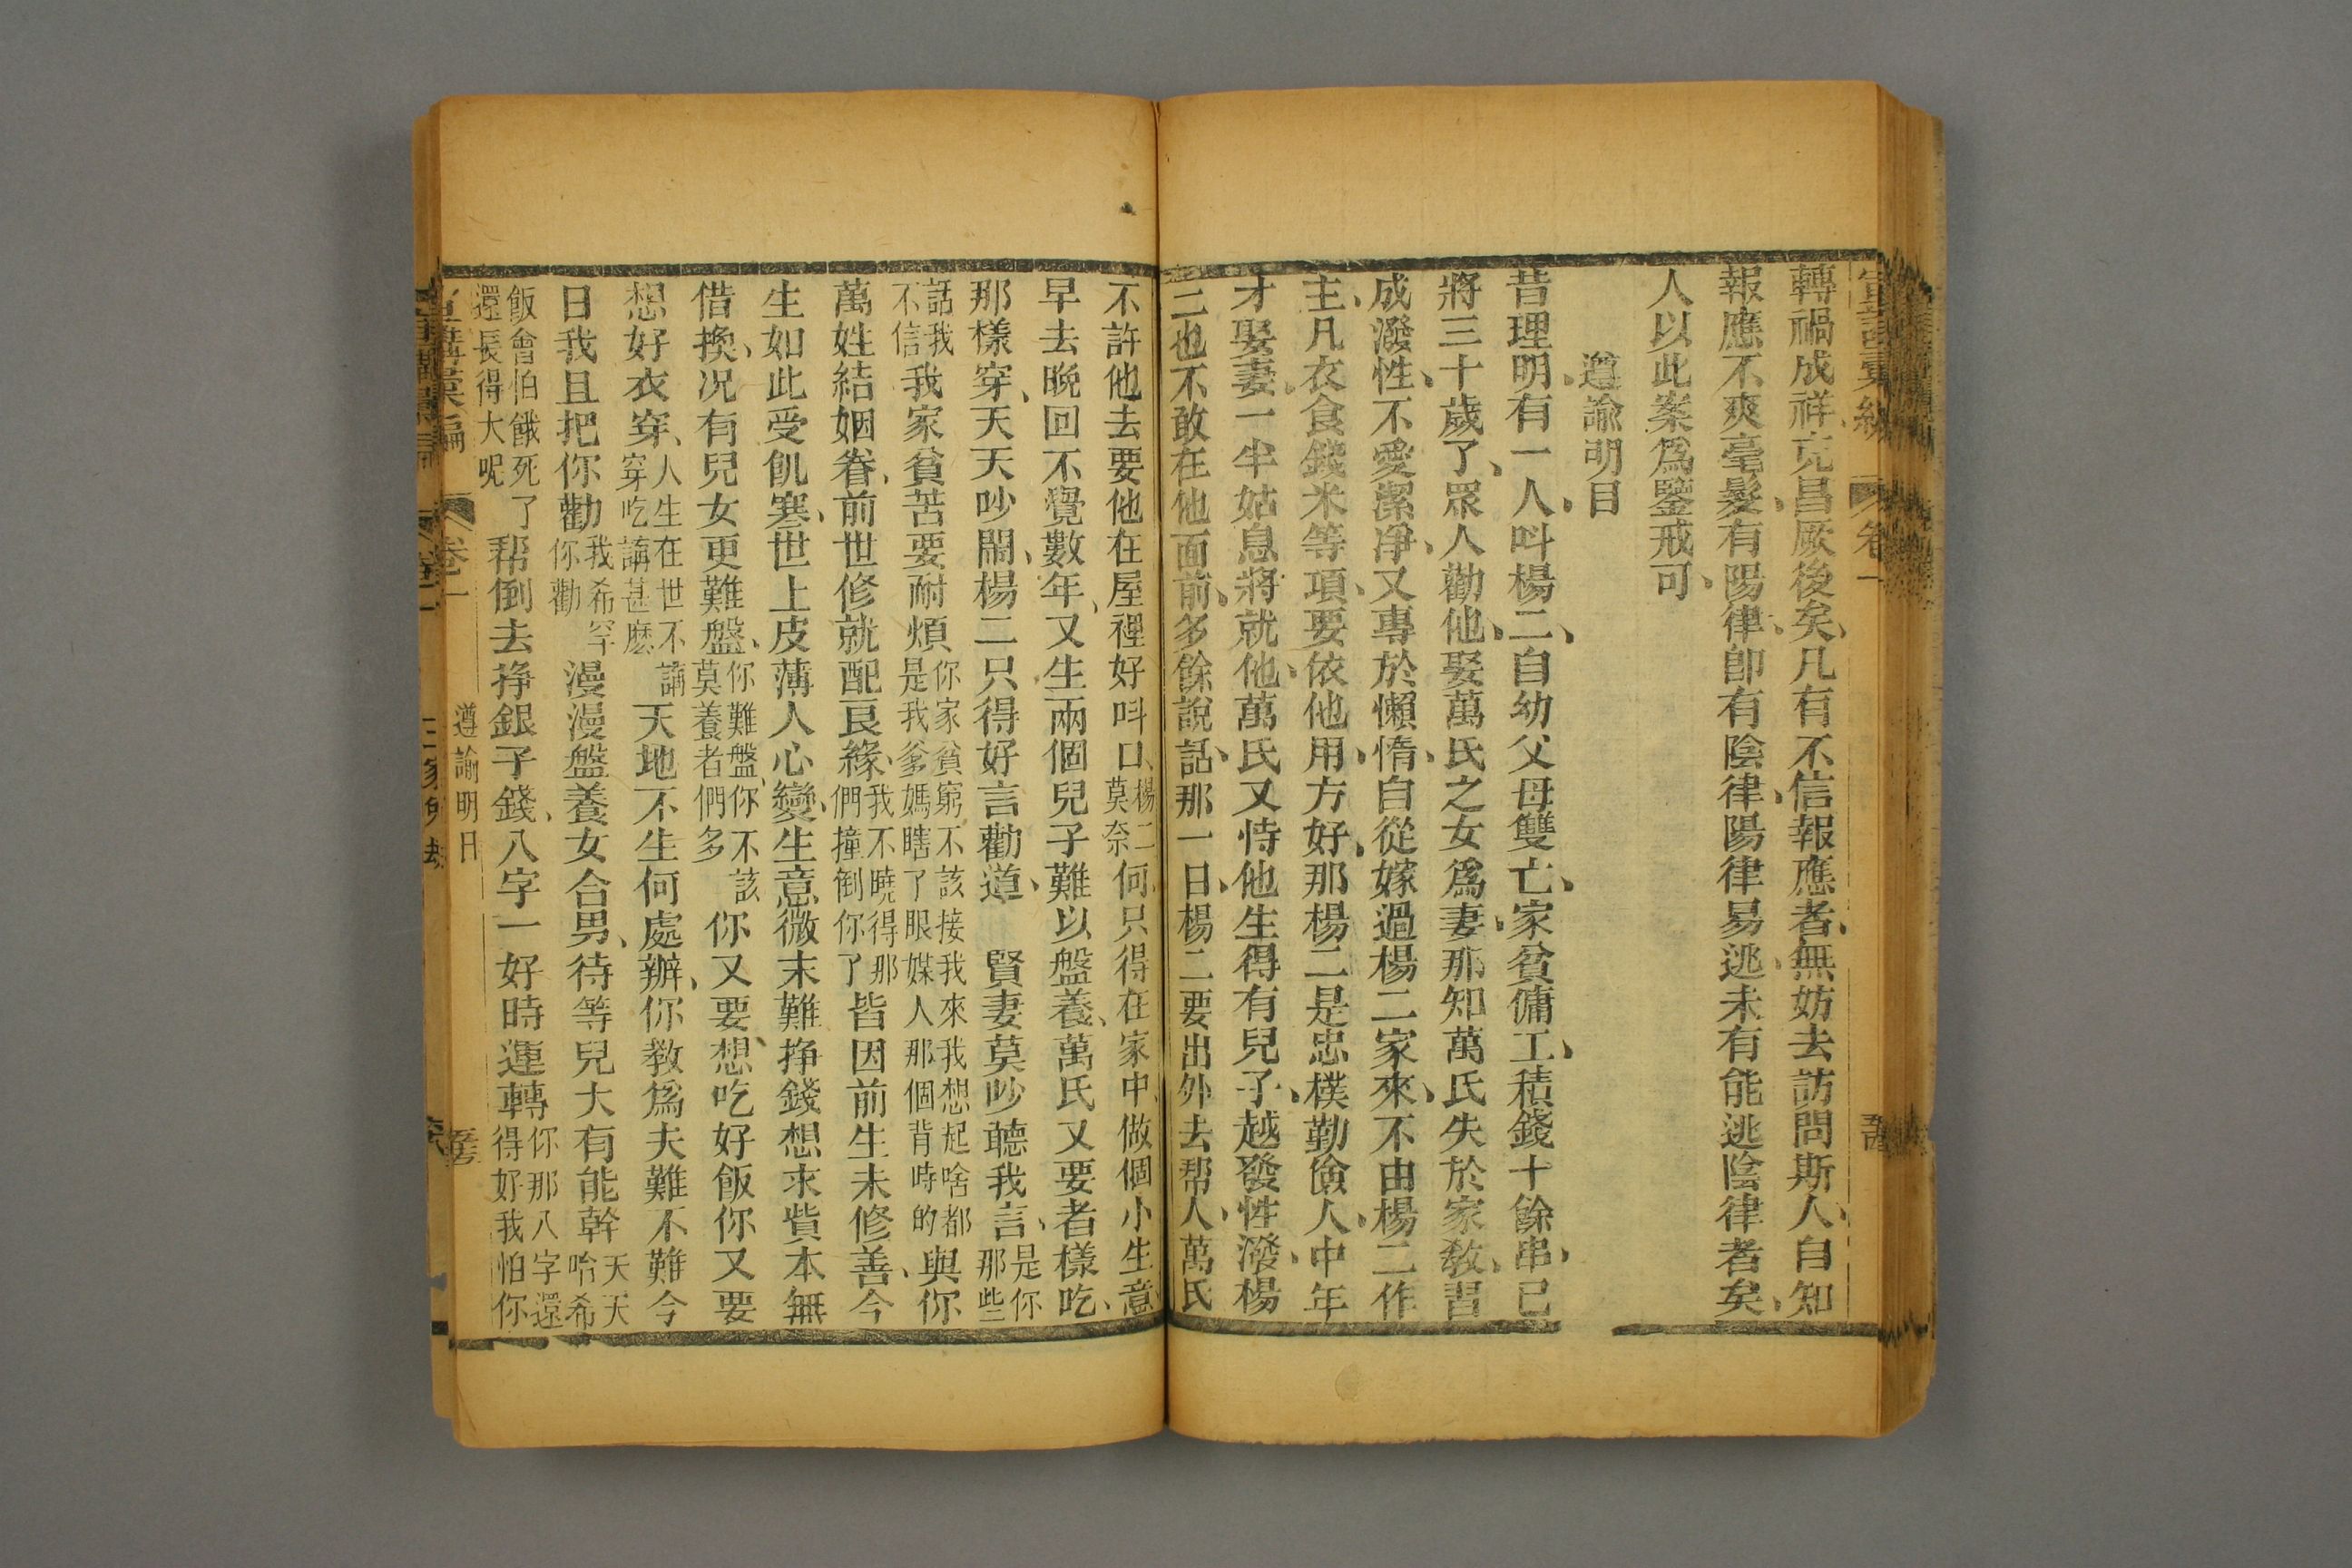 轉禍成祥、克昌厥後矣、凡有不信報應者、無妨去訪問斯人、自知
報應不爽毫髮、有陽律、卽有陰律、陽律易逃、未有能逃陰律者矣、
人以此案爲鑒戒可、
遵諭明目
昔理明、有一人、呌楊二、自幼父母雙亡、家貧傭工、積錢十餘串、已
將三十歲了、眾人勸他、娶萬氏之女爲妻、那知萬氏失於家教、習
成潑性、不愛潔凈、又專於懶惰、自從嫁過楊二家來、不由楊二作
主、凡衣食錢米等項、要依他用、方好、那楊二是忠樸勤儉人、中年
才娶妻、一半姑息將就他、萬氏又恃他生得有兒子、越發性潑、楊
二也不敢在他面前、多餘說話、那一日、楊二要出外去帮人、萬氏
不許他去要他在屋裡好呌口、楊二莫奈何、只得在家中、做個小生意、
早去晚回不覺數年、又生兩個兒子難以盤養、萬氏又要者樣吃、
那樣穿、天天吵鬧、楊二只得好言勸道、 賢妻莫吵聽我言、是你那些
話我不信我家貧苦要耐煩你家貧窮不該接我來我想起啥都是我爹媽瞎了眼媒人那個背時的與你
萬姓結姻眷、前世修就配良緣、我不曉得那們撞倒你了皆因前生未修善、今
生如此受飢寒、世上皮薄人心變、生意微末難掙錢想求貲本無
借換、况有兒女更難盤、你難盤、你不該莫養者們多你又要想、吃好飯你又要
想好衣穿、人生在世不講穿吃講甚麽天地不生何處辦、你教爲夫難不難今
日我且把你勸我希罕你勸漫漫盤養女合男、待等兒大有能幹天天哈希
飯會怕餓死了還長得大呢帮倒去掙銀子錢、八字一好時運轉你那八字還得好我怕你
宣講彙編 卷一 遵諭明目